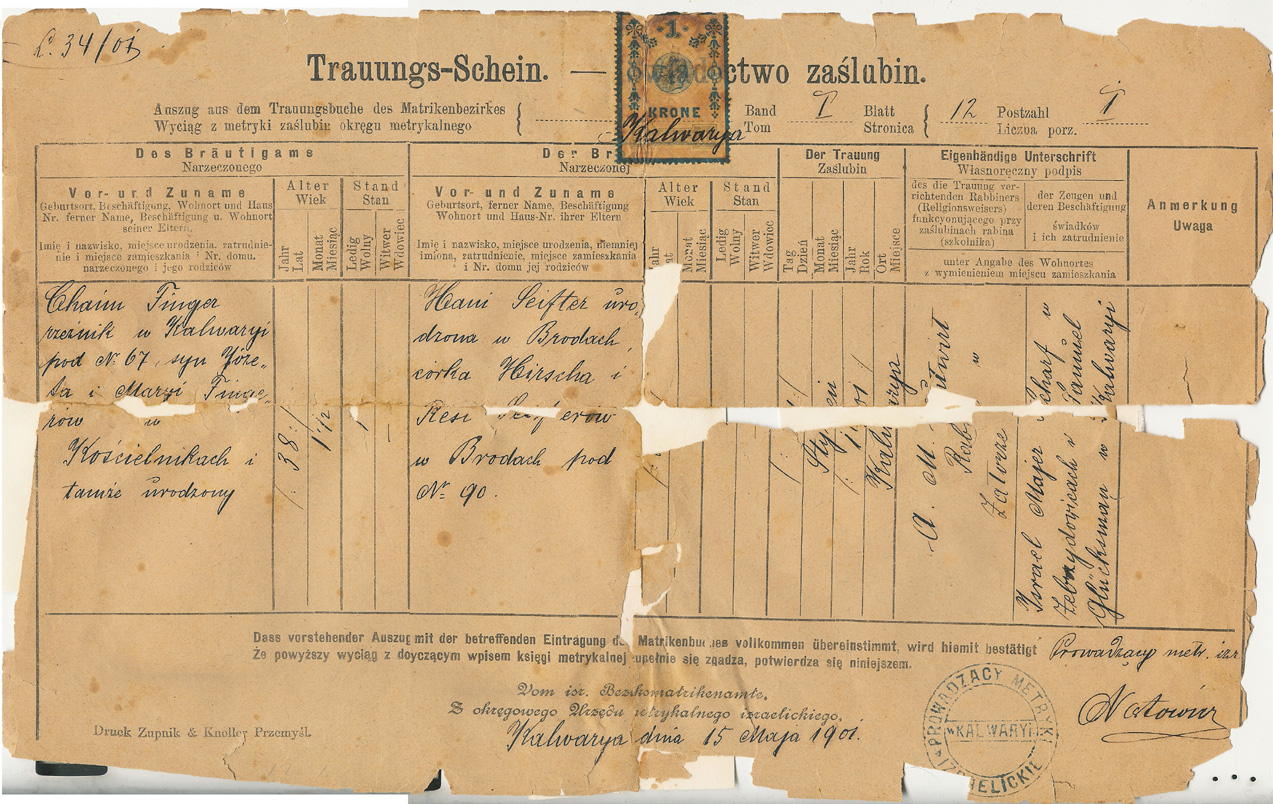 L. 34/01
Trauungs-Schein. — ctwo zaślubin.
Auszug aus dem Trauungsbuche des Matrikenbezirkes
Wyciąg z metryki zaślubin okręgu metrykalnego
1
KRONE
Kalwarya
Band I Blatt 12 Postzahl I
Tom Stronica Liczba porz.
Des Bräutigams
Narzeczonego
Vor- und Zuname
Geburtsort, Beschäftigung, Wohnort und Haus
Nr. ferner Name, Beschäftigung u. Wohnort
seiner Eltern.
Imię i nazwisko, miejsce urodzenia, zatrudnie-
nie i miejsce zamieszkania i Nr. domu.
narzeczonego i jego rodziców
Alter
Wiek
Jahr
Lat
Monat
Miesiąc
Stand
Stan
Ledig
Wolny
Witwer
Wdowiec
Der Br
Narzeczonej
Vor- und Zuname
Geburtsort, ferner Name, Beschäftigung
Wohnort und Haus-Nr. ihrer Eltern
Imię i nazwisko, miejsce urodzenia, niemniej
imiona, zatrudnienie, miejsce zamieszkania
i Nr. domu jej rodziców
Alter
Wiek
Jahr
at
Monat
Miesiąc
Stand
Stan
Ledig
Wolny
Witwer
Wdowiec
Der Trauung
Zaślubin
Tag
Dzień
Monat
Miesiąc
Jahr
Rok
Ort
Miejsce
Eigenhändige Unterschrift
Własnoręczny podpis
des die Trauung ver-
richtenden Rabbiners
(Religionsweisers)
funkcyonującego przy
zaślubinach rabina
(szkolnika)
der Zeugen und
deren Beschäftigung
świadków
i ich zatrudnienie
unter Angabe des Wohnortes
z wymienieniem miejscu zamieszkania
Anmerkung
Uwaga
Chaim Finger
rzeźnik w Kalwaryi
pod № 67, syn Józe-
fa i Maryi Finge-
rów w
Kościelnikach i
tamże urodzony
38
1 1/2
1
Hani Seifter uro-
drona w Brodach,
córka Hirscha i
Resi Seifterów
w Brodach pod
№ 90.
Kalwarya
A. M.
w
Zatorze
Israel Majer Scharf w
Zebrzydowicach i Samuel
Glücksman w Kalwaryi
Dass vorstehender Auszug mit der betreffenden Eintragung de Matrikenbuches vollkommen übereinstimmt, wird hiemit bestätigt
Że powyższy wyciąg z doyczącym wpisem księgi metrykalnej zupełnie się zgadza, potwierdza się niniejszem.
Prowadzący metr. izr
Vom isr. Bezirksmatrikenamte.
Z okręgowego Urzędu metrykalnego izraelickiego.
Kalwarya dnia 15 Maja 1901.
PROWADZĄCY METRYKI
KALWARYI
IZRAELICKIE
Druck Zupnik & Knoller Przemyśl.